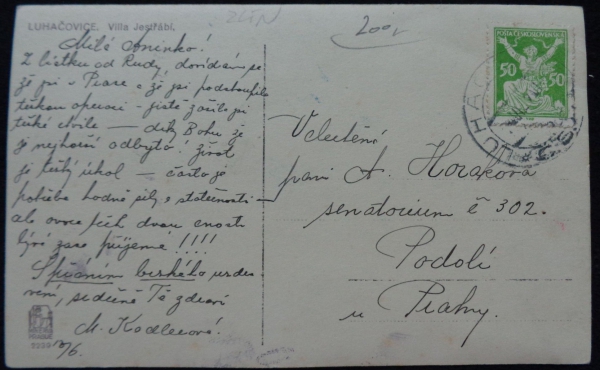 LUHAČOVICE. Villa Jestřábí.
ZLÍN
200,-
Milá Aninko!
Z lístku od Rudy dovídám se
že jsi v Praze a že jsi podstoupila
těžkou operaci - jistě zažila jsi
těžké chvíle — díky Bohu že
je nejhorší odbyto! Život
je těžký úkol — často je
potřeba hodně síly a statečnosti -
ale ovoce těch dvou cností
bývá zase příjemné!!!!
S přáním brzkého uzdra
vení, srdečně Tě zdraví
M. Kodlecová.
6.
POSTA ČESKOSLOVENSKÁ
50 50
LUHAČ
Velectěná
paní A. Horáková
senatorium č 302.
Podolí
u Prahy.